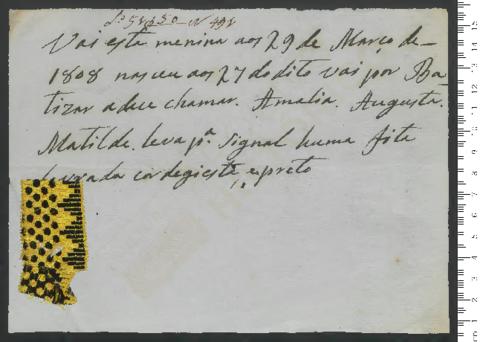 Lº 58 f 50 N 491
Vai esta menina aos 29 de Março de
1808 nasceu aos 27 do dito vai por Ba-
tizar adece chamar. Amalia. Augusta.
Matilde. leva pª. signal huma fita
lavrada cor de giesta, e preto